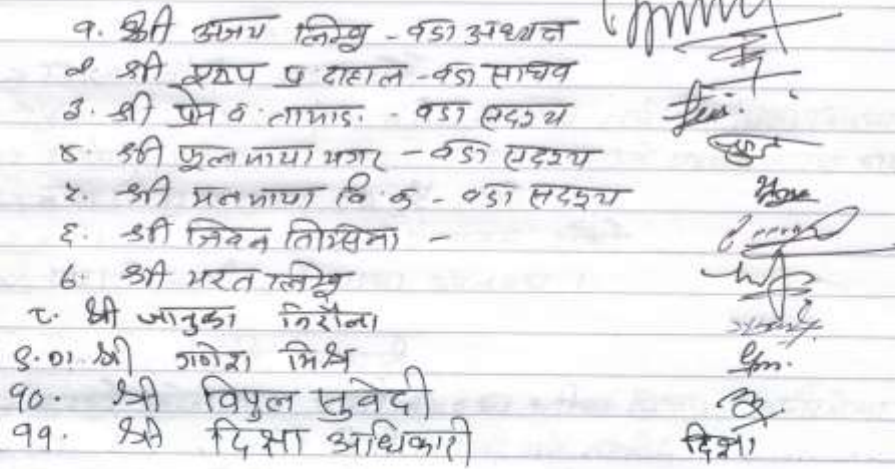 १. श्री अजय लिम्बु - वडा अध्यक्ष
२. श्री प्र दाहाल - वडा सचिव
३. श्री प्रेम ब. तामाङ - वडा सदस्य
४. श्री फुलमाया मगर - वडा सदस्य
५. श्री मनमाया वि.क - वडा सदस्य
६. श्री जिवन तिम्सिना -
७ श्री भरत लिम्बु
८. श्री जानुका निरौला
९. श्री गणेश मिश्र
१०. श्री विपुल सुवेदी
११. श्री दिक्षा अधिकारी दिक्षा